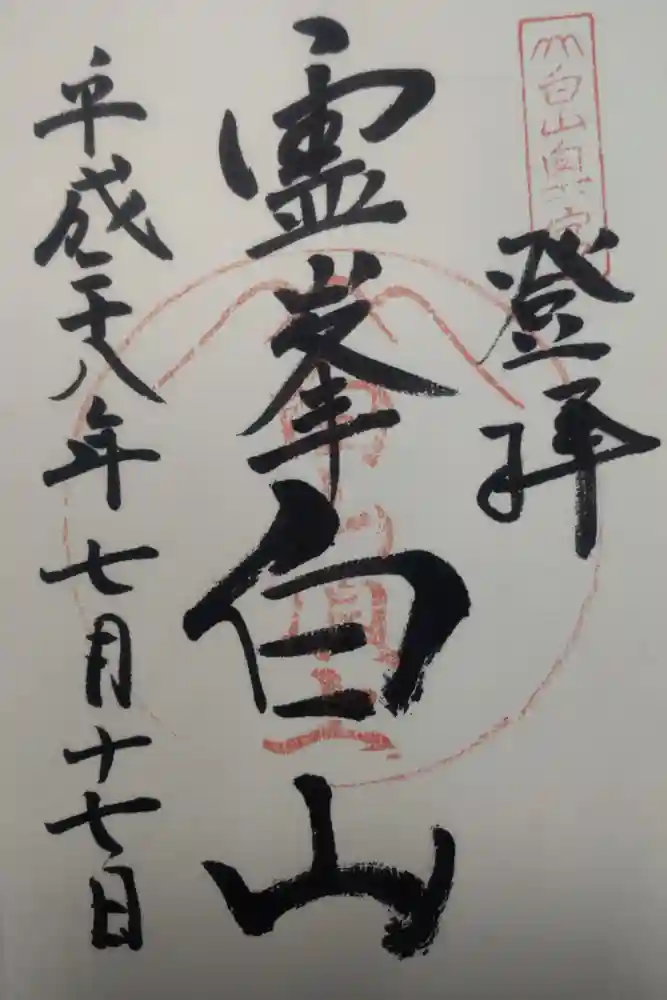 登拝
霊峯白山
平成二十八年七月十七日
白山奥宮